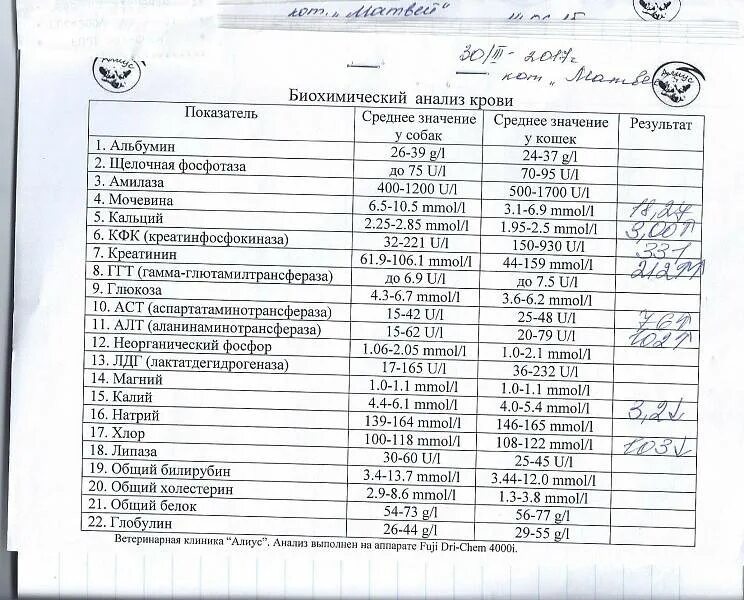 кот. „Матвей"
30/III - 2017г
кот „Матвей
Алиус
Биохимический анализ крови
Показатель Среднее значение у собак Среднее значение у кошек Результат
1. Альбумин 26-39 g/l 24-37 g/l
2. Щелочная фосфотаза до 75 U/l 70-95 U/l
3. Амилаза 400-1200 U/l 500-1700 U/l
4. Мочевина 6.5-10.5 mmol/l 3.1-6.9 mmol/l
5. Кальций 2.25-2.85 mmol/l 1.95-2.5 mmol/l 3,00↑
6. КФК (креатинфосфокиназа) 32-221 U/l 150-930 U/l 331
7. Креатинин 61.9-106.1 mmol/l 44-159 mmol/l 212↑↑
8. ГГТ (гамма-глютамилтрансфераза) до 6.9 U/l до 7.5 U/l
9. Глюкоза 4.3-6.7 mmol/l 3.6-6.2 mmol/l
10. АСТ (аспартатаминотрансфераза) 15-42 U/l 25-48 U/l 76↑
11. АЛТ (аланинаминотрансфераза) 15-62 U/l 20-79 U/l 102↑
12. Неорганический фосфор 1.06-2.05 mmol/l 1.0-2.1 mmol/l
13. ЛДГ (лактатдегидрогеназа) 17-165 U/l 36-232 U/l
14. Магний 1.0-1.1 mmol/l 1.0-1.1 mmol/l
15. Калий 4.4-6.1 mmol/l 4.0-5.4 mmol/l 3,2↓
16. Натрий 139-164 mmol/l 146-165 mmol/l
17. Хлор 100-118 mmol/l 108-122 mmol/l 103↓
18. Липаза 30-60 U/l 25-45 U/l
19. Общий билирубин 3.4-13.7 mmol/l 3.44-12.0 mmol/l
20. Общий холестерин 2.9-8.6 mmol/l 1.3-3.8 mmol/l
21. Общий белок 54-73 g/l 56-77 g/l
22. Глобулин 26-44 g/l 29-55 g/l
Ветеринарная клиника "Алиус". Анализ выполнен на аппарате Fuji Dri-Chem 4000i.